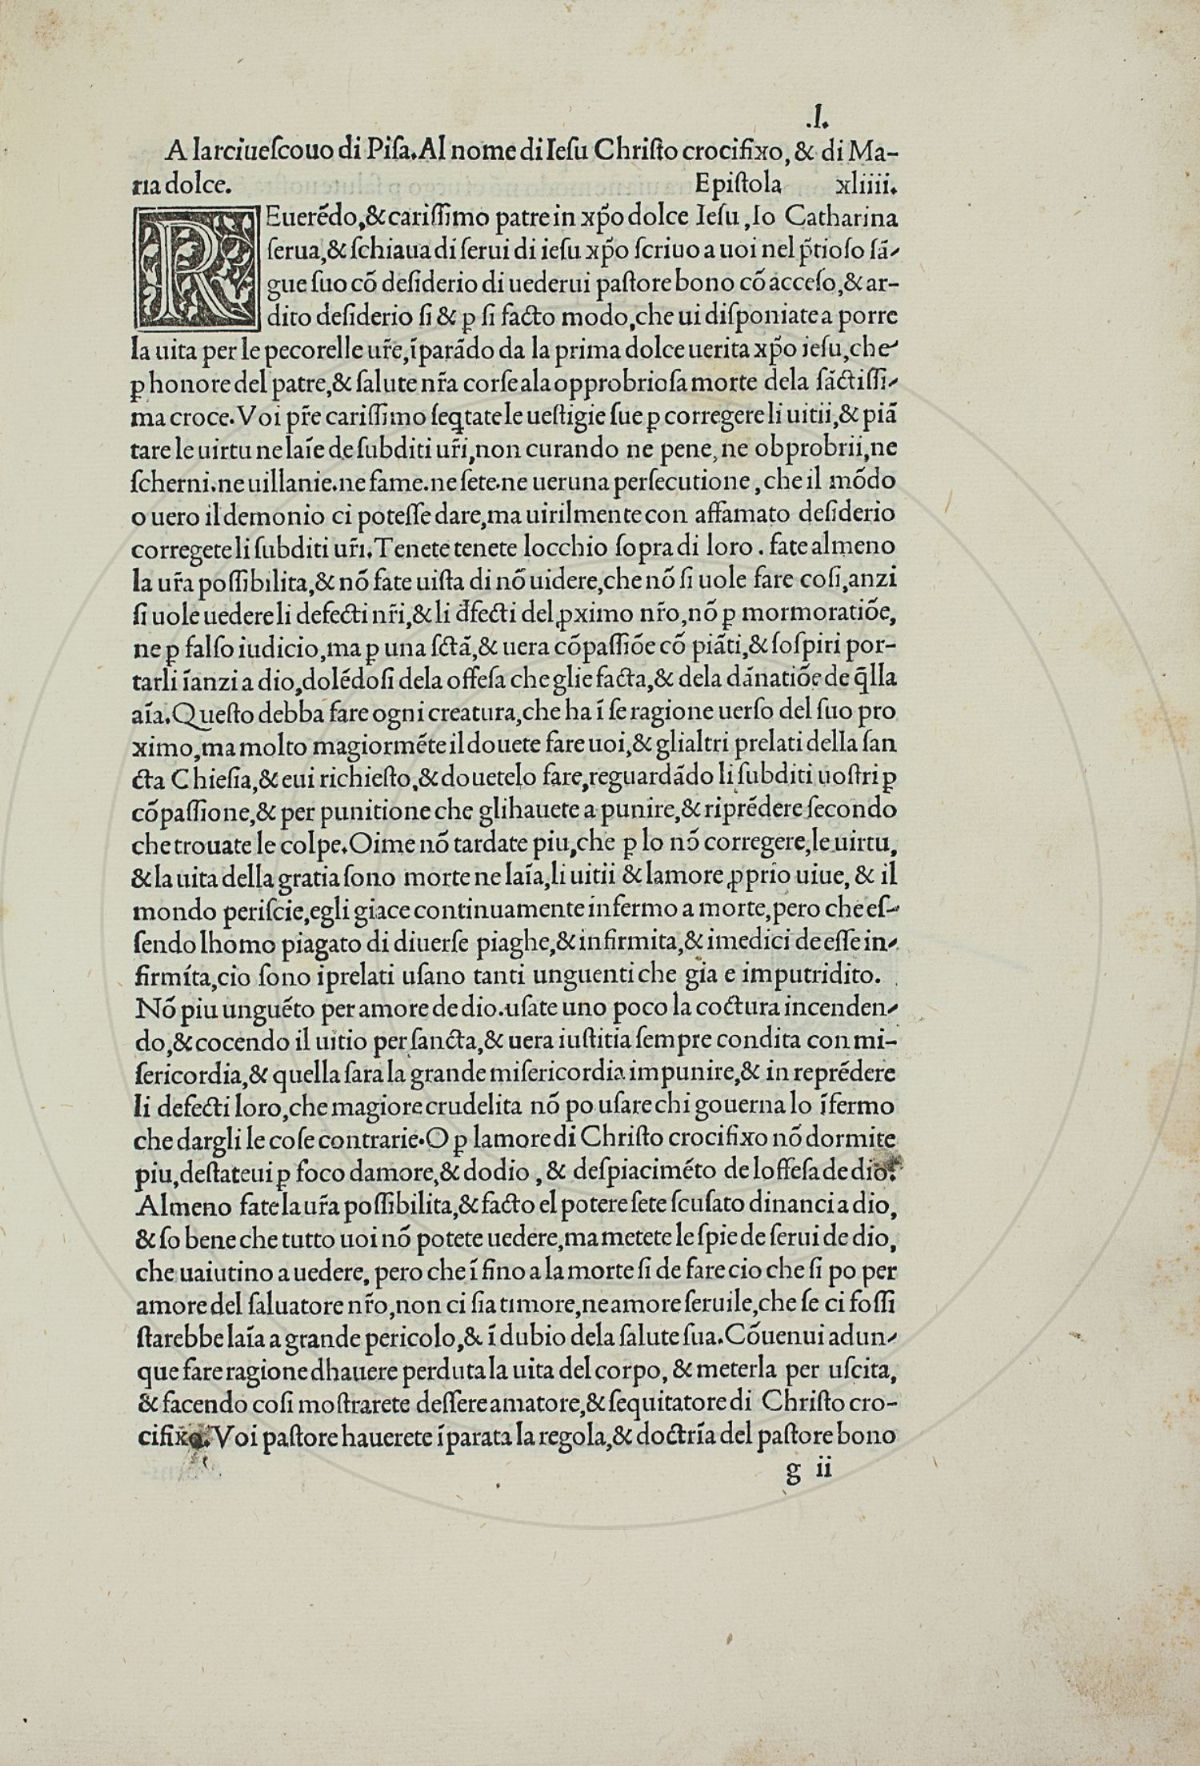 .l.
A larciueſcouo di Piſa. Al nome di Ieſu Chriſto crocifixo, & di Ma-
ria dolce. Epiſtola xliiii.
REuerẽdo, & cariſſimo patre in xp̃o dolce Ieſu, Io Catharina
ſerua, & ſchiaua di ſerui di ieſu xp̃o ſcriuo a uoi nel p̃tioſo ſã-
gue ſuo cõ deſiderio di uederui paſtore bono cõ acceſo, & ar-
dito deſiderio ſi & ꝑ ſi facto modo, che ui diſponiate a porre
la uita per le pecorelle ur̃e, ĩparãdo da la prima dolce uerita xp̃o ieſu, che
ꝑ honore del patre, & ſalute nr̃a corſe ala opprobrioſa morte dela ſãctiſſi-
ma croce. Voi pr̃e cariſſimo ſeq̃tate le ueſtigie ſue ꝑ corregere li uitii, & piã
tare le uirtu ne laĩe de ſubditi ur̃i, non curando ne pene, ne obprobrii, ne
ſcherni. ne uillanie. ne fame. ne ſete. ne ueruna perſecutione, che il mõdo
o uero il demonio ci poteſſe dare, ma uirilmente con affamato deſiderio
corregete li ſubditi ur̃i. Tenete tenete locchio ſopra di loro. fate almeno
la ur̃a poſſibilita, & nõ fate uiſta di nõ uidere, che nõ ſi uole fare coſi, anzi
ſi uole uedere li defecti nr̃i, & li d̃fecti del ꝓximo nr̃o, nõ ꝑ mormoratiõe,
ne ꝑ falſo iudicio, ma ꝑ una ſctã, & uera cõpaſſiõe cõ piãti, & ſoſpiri por-
tarli ĩanzi a dio, dolẽdoſi dela offeſa che glie facta, & dela dãnatiõe de q̃lla
aĩa. Queſto debba fare ogni creatura, che ha ĩ ſe ragione uerſo del ſuo pro
ximo, ma molto magiormẽte il douete fare uoi, & glialtri prelati della ſan
cta Chieſia, & eui richieſto, & douetelo fare, reguardãdo li ſubditi uoſtri ꝑ
cõpaſſione, & per punitione che glihauete a punire, & riprẽdere ſecondo
che trouate le colpe. Oime nõ tardate piu, che ꝑ lo nõ corregere, le uirtu,
& la uita della gratia ſono morte ne laĩa, li uitii & lamore ꝓprio uiue, & il
mondo periſcie, egli giace continuamente infermo a morte, pero che eſ-
ſendo lhomo piagato di diuerſe piaghe, & infirmita, & imedici de eſſe in-
firmíta, cio ſono iprelati uſano tanti unguenti che gia e imputridito.
Nõ piu unguẽto per amore de dio. uſate uno poco la coctura incenden-
do, & cocendo il uitio per ſancta, & uera iuſtitia ſempre condita con mi-
ſericordia, & quella ſara la grande miſericordia impunire, & in reprẽdere
li defecti loro, che magiore crudelita nõ po uſare chi gouerna lo ĩfermo
che dargli le coſe contrarie. O ꝑ lamore di Chriſto crocifixo nõ dormite
piu, deſtateui ꝑ foco damore, & dodio, & deſpiacimẽto de loffeſa de dio.
Almeno fate la ur̃a poſſibilita, & facto el potere ſete ſcuſato dinanci a dio,
& ſo bene che tutto uoi nõ potete uedere, ma metete le ſpie de ſerui de dio,
che uaiutino a uedere, pero che ĩ fino a la morte ſi de fare cio che ſi po per
amore del ſaluatore nr̃o, non ci ſia timore, ne amore ſeruile, che ſe ci foſſi
ſtarebbe laĩa a grande pericolo, & ĩ dubio dela ſalute ſua. Cõuenui adun-
que fare ragione dhauere perduta la uita del corpo, & meterla per uſcita,
& facendo coſi moſtrarete deſſere amatore, & ſequitatore di Chriſto cro-
cifixo. Voi paſtore hauerete ĩparata la regola, & doctrĩa del paſtore bono
g ii